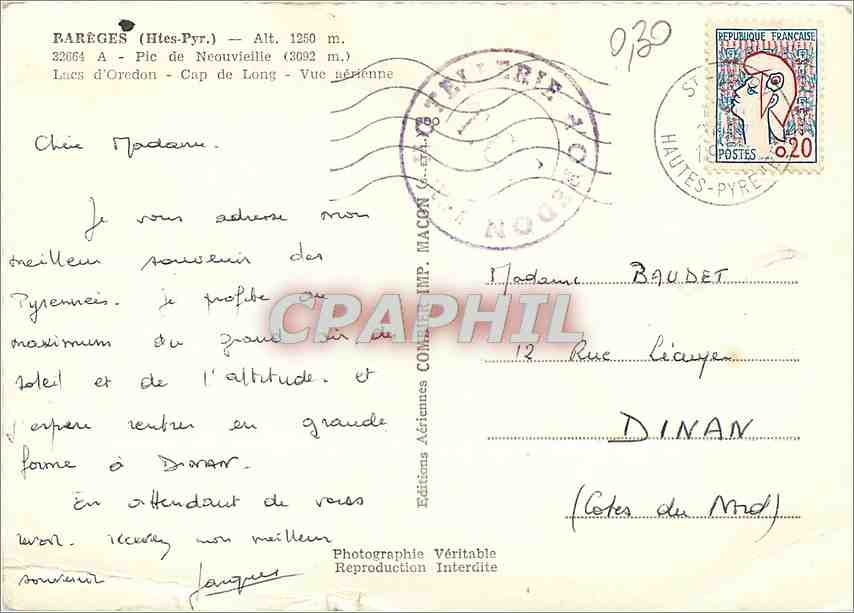 BARÈGES (Htes-Pyr.) — Alt. 1250 m.
32664 A - Pic de Neouvieille (3092 m.)
Lacs d'Oredon - Cap de Long - Vue aérienne
0,30
REPUBLIQUE FRANÇAISE
POSTES 0.20
ST
HAUTES-PYRÉNÉES
HOTELLERIE
OREDON
Chère Madame.
Je vous adresse mon
meilleur souvenir des
Pyrennées. je profite au
maximum du grand air du
soleil et de l'altitude. et
j'espere rentrer en grande
forme à DINAN.
En attendant de vous
revoir. recevez mon meilleur
souvenir Jacques
Editions Aériennes COMBIER IMP. MACON
CPAPHIL
Madame BAUDET
12 Rue
DINAN
(Cotes du Nord)
Photographie Véritable
Reproduction Interdite